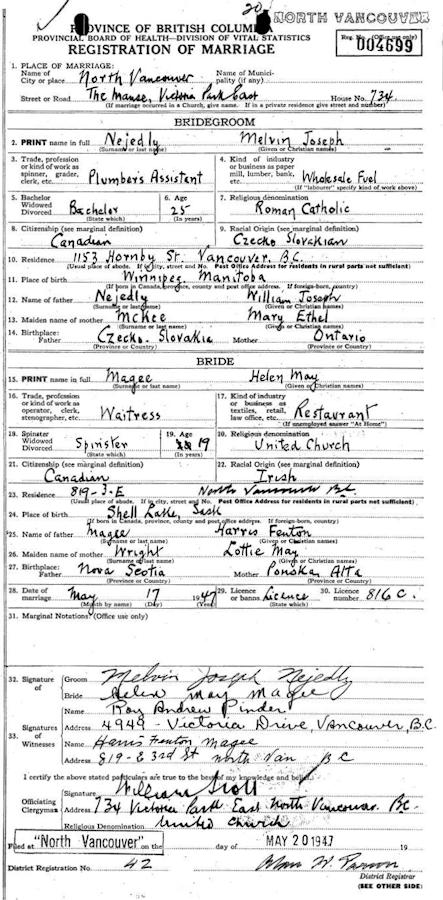 20
NORTH VANCOUVER
PROVINCE OF BRITISH COLUMBIA
PROVINCIAL BOARD OF HEALTH—DIVISION OF VITAL STATISTICS
REGISTRATION OF MARRIAGE
Reg. No. (Office use only)
004699
1. PLACE OF MARRIAGE:
Name of City or place North Vancouver Name of Municipality (if any)
Street or Road The Manse, Victoria Park East House No. 734
(If marriage occurred in a Church, give name. If in a private residence give street and number)
BRIDEGROOM
2. PRINT name in full Nejedly Melvin Joseph
(Surname or last name) (Given or Christian names)
3. Trade, profession or kind of work as spinner, grader, clerk, etc. Plumber's Assistant
4. Kind of industry or business as paper mill, lumber, bank, etc. Wholesale Fuel
(If "labourer" specify kind of work above)
5. Bachelor Widowed Divorced Bachelor (State which)
6. Age 25 (In years)
7. Religious denomination Roman Catholic
8. Citizenship (see marginal definition) Canadian
9. Racial Origin (see marginal definition) Czecko Slovakian
10. Residence 1153 Hornby St. Vancouver. B.C.
(Usual place of abode. If in city, street and No. Post Office Address for residents in rural parts not sufficient)
11. Place of birth Winnipeg, Manitoba
(If born in Canada, province, county and post office address. If foreign-born, country)
12. Name of father Nejedly William Joseph
(Surname or last name) (Given or Christian names)
13. Maiden name of mother McKee Mary Ethel
(Surname or last name) (Given or Christian names)
14. Birthplace: Father Czecko. Slovakia Mother Ontario
(Province or Country) (Province or Country)
BRIDE
15. PRINT name in full Magee Helen May
(Surname or last name) (Given or Christian names)
16. Trade, profession or kind of work as operator, clerk, stenographer, etc. Waitress
17. Kind of industry or business as textiles, retail, law office, etc. Restaurant
(If unemployed answer "At Home")
18. Spinster Widowed Divorced Spinster (State which)
19. Age 19 (In years)
20. Religious denomination United Church
21. Citizenship (see marginal definition) Canadian
22. Racial Origin (see marginal definition) Irish
23. Residence 819-3-E North Vancouver B.C.
(Usual place of abode. If in city, street and No. Post Office Address for residents in rural parts not sufficient)
24. Place of birth Shell Lake, Sask
(If born in Canada, province, county and post office address. If foreign-born, country)
25. Name of father Magee Harris Fenton
(Surname or last name) (Given or Christian names)
26. Maiden name of mother Wright Lottie May
(Surname or last name) (Given or Christian names)
27. Birthplace: Father Nova Scotia Mother Ponoka, Alta
(Province or Country) (Province or Country)
28. Date of marriage May 17 1947
(Month by name) (Day) (Year)
29. Licence or banns Licence (State which)
30. Licence number 816 C.
31. Marginal Notations: (Office use only)
32. Signature of Groom Melvin Joseph Nejedly
Bride Helen May Magee
33. Signatures of Witnesses
Name Roy Andrew Pinder
Address 4949 - Victoria Drive, Vancouver, B.C.
Name Harris Fenton Magee
Address 819-E 3rd St North Van BC
I certify the above stated particulars are true to the best of my knowledge and belief.
Officiating Clergyman
Signature William Scott
Address 734 Victoria Park East North Vancouver B.C.
Religious Denomination United Church
Filed at "North Vancouver" on the day of MAY 20 1947 19
District Registration No. 42
District Registrar
(SEE OTHER SIDE)